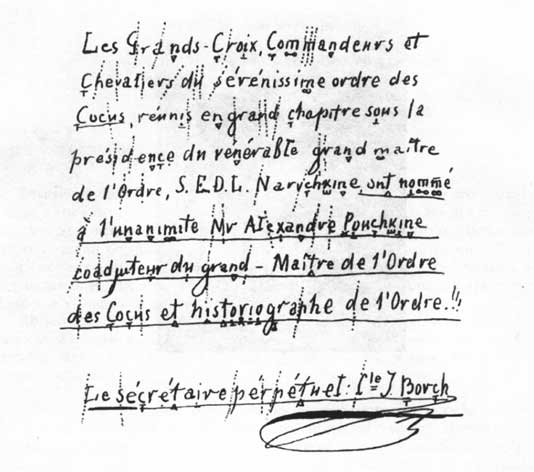 Les Grands-Croix, Commandeurs et
Chevaliers du sérénissime ordre des
Cocus, réunis en grand chapitre sous la
présidence du vénérable grand maître
de l'Ordre, S. E. D. L. Narychkine ont nommé
à l'unanimite Mr Alexandre Pouchkine
coadjuteur du grand-Maître de l'Ordre
des Cocus et historiographe de l'Ordre.!!
Le sécrétaire perpétuel: Cle J. Borch